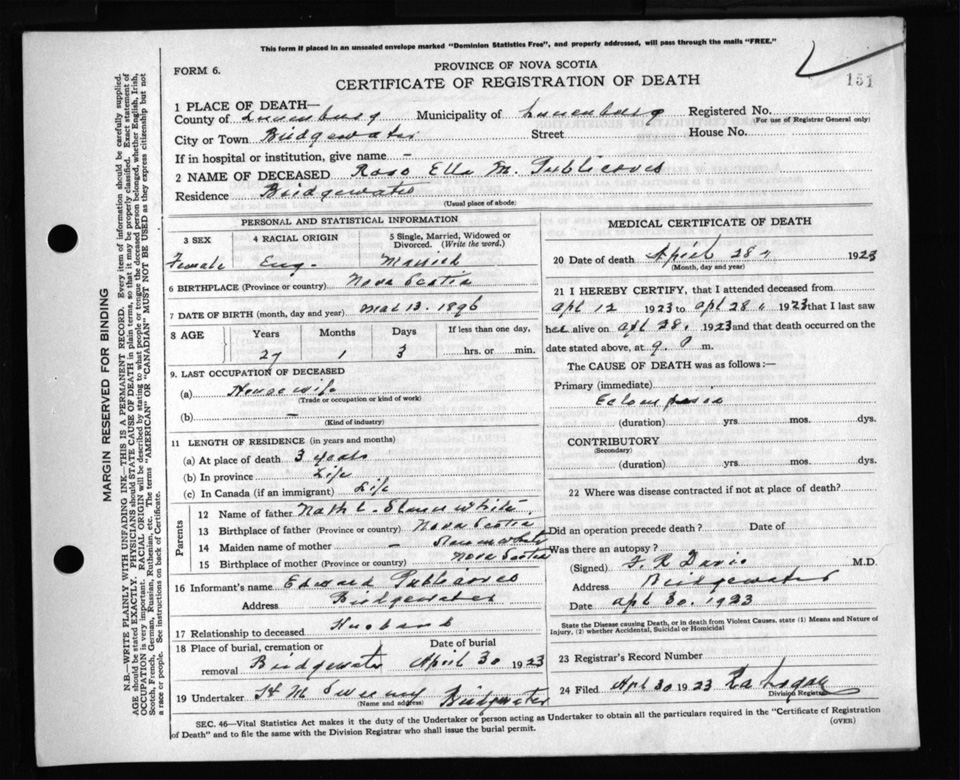 This form if placed in an unsealed envelope marked "Dominion Statistics Free", and properly addressed, will pass through the mails "FREE."
FORM 6.
PROVINCE OF NOVA SCOTIA
CERTIFICATE OF REGISTRATION OF DEATH
151
1 PLACE OF DEATH—
County of Lunenburg Municipality of Lunenburg Registered No.
(For use of Registrar General only)
City or Town Bridgewater Street House No.
If in hospital or institution, give name –
2 NAME OF DECEASED Ella M. Publicover
Residence Bridgewater
(Usual place of abode)
PERSONAL AND STATISTICAL INFORMATION
3 SEX 4 RACIAL ORIGIN 5 Single, Married, Widowed or Divorced. (Write the word.)
Female Eng. Married
6 BIRTHPLACE (Province or country) Nova Scotia
7 DATE OF BIRTH (month, day and year) Mar 13. 1896
8 AGE Years Months Days If less than one day,
27 1 3 hrs. or min.
9. LAST OCCUPATION OF DECEASED
(a) House wife
(Trade or occupation or kind of work)
(b) –
(Kind of industry)
11 LENGTH OF RESIDENCE (in years and months)
(a) At place of death 3 years
(b) In province Life
(c) In Canada (if an immigrant) Life
Parents
12 Name of father Nath L. White
13 Birthplace of father (Province or country) Nova Scotia
14 Maiden name of mother –
15 Birthplace of mother (Province or country) Nova Scotia
16 Informant's name Edward Publicover
Address Bridgewater
17 Relationship to deceased Husband
18 Place of burial, cremation or removal Date of burial
Bridgewater April 30 1923
19 Undertaker H M Sweeny Bridgewater
(Name and address)
MEDICAL CERTIFICATE OF DEATH
20 Date of death April 28 1923
(Month, day and year)
21 I HEREBY CERTIFY, that I attended deceased from
Apl 12 1923 to Apl 28 1923 that I last saw
her alive on Apl 28. 1923 and that death occurred on the
date stated above, at 9. P m.
The CAUSE OF DEATH was as follows:—
Primary (immediate)
Eclampsia
(duration) yrs. mos. dys.
CONTRIBUTORY
(Secondary)
(duration) yrs. mos. dys.
22 Where was disease contracted if not at place of death?
Did an operation precede death? Date of
Was there an autopsy?
(Signed) F. R Davis M.D.
Address Bridgewater
Date Apl 30. 1923
State the Disease causing Death, or in death from Violent Causes, state (1) Means and Nature of
Injury, (2) whether Accidental, Suicidal or Homicidal
23 Registrar's Record Number
24 Filed Apl 30 1923
Division Registrar
SEC. 46—Vital Statistics Act makes it the duty of the Undertaker or person acting as Undertaker to obtain all the particulars required in the "Certificate of Registration
of Death" and to file the same with the Division Registrar who shall issue the burial permit.
(OVER)
MARGIN RESERVED FOR BINDING
N.B.—WRITE PLAINLY WITH UNFADING INK—THIS IS A PERMANENT RECORD. Every item of information should be carefully supplied.
AGE should be stated EXACTLY. PHYSICIANS should STATE CAUSE OF DEATH in plain terms, so that it may be properly classified. Exact statement of
OCCUPATION is very important. RACIAL ORIGIN will be described by stating to what people or tongue the deceased person belonged, whether English, Irish,
Scotch, French, German, Russian, Ruthenian, etc. The terms "AMERICAN" OR "CANADIAN" MUST NOT BE USED as they express citizenship but not
a race or people. See instructions on back of Certificate.